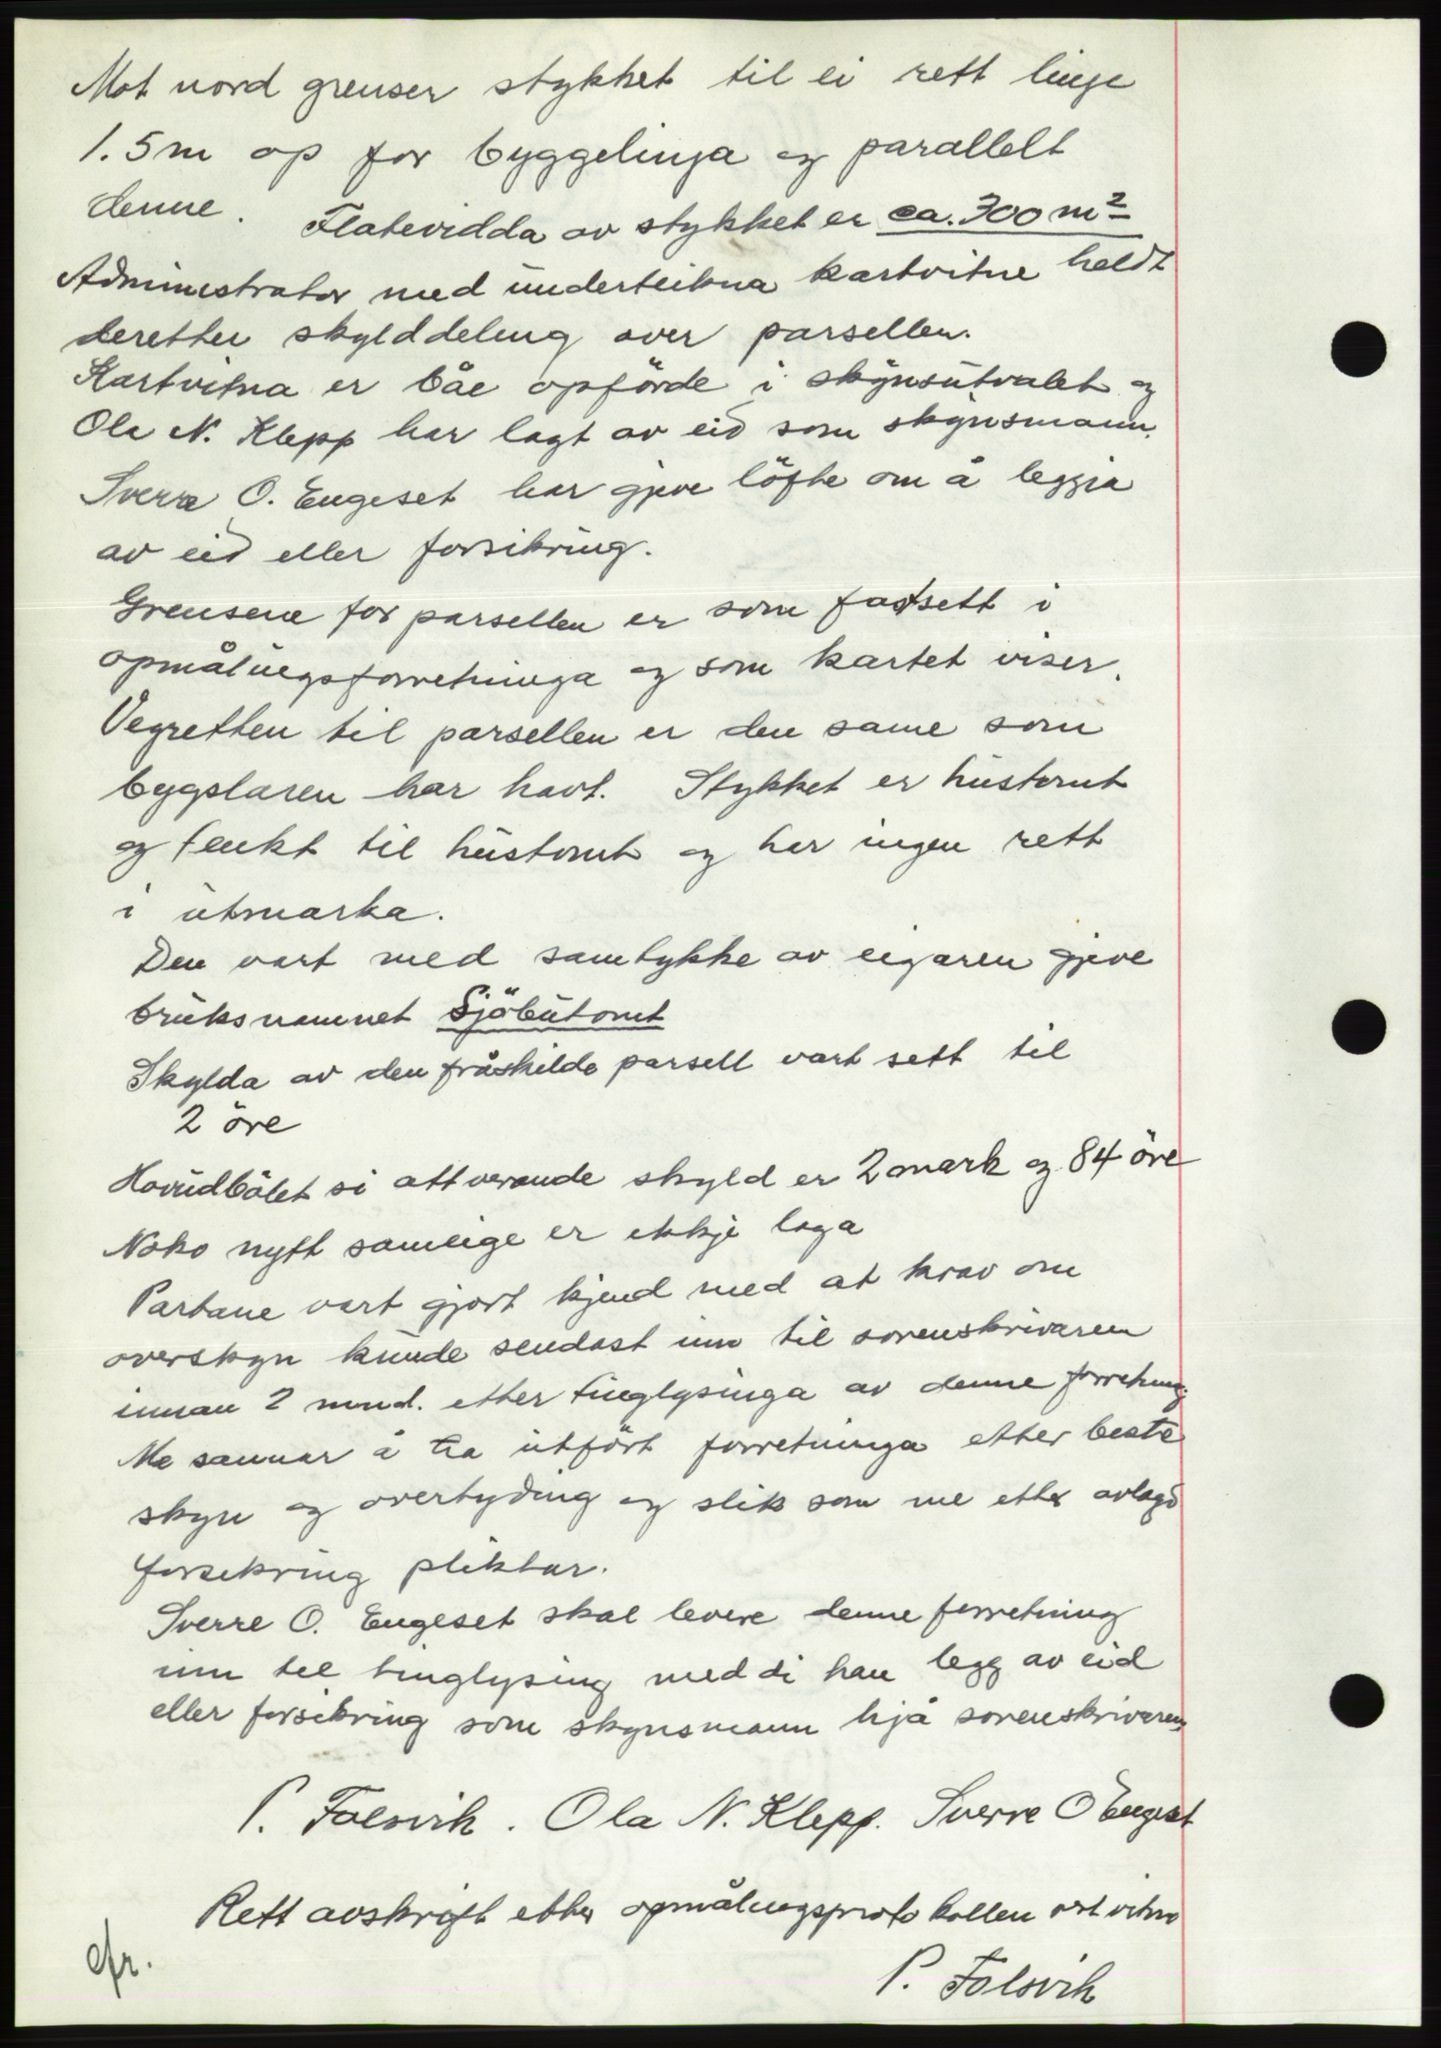 Mot nord grenser stykket til ei rett linje
1.5m op for byggelinja og parallelt
denne. Flatevidda av stykket er ca. 700 m²
Administrator med underteikna kartvitne heldt
deretter skylddeling over parsellen.
Kartvitna er båe opförde i skynsutvalet og
Ola N. Klepp har lagt av eid som skynsmann.
Sverre O. Engeset har gjeve löfte om å leggja
av eid eller forsikring.
Grensene for parsellen er som fastsett i
opmålingsforretninga og som kartet viser.
Vegretten til parsellen er den same som
bygslaren har havt. Stykket er hustomt
og tenkt til hustomt og har ingen rett
i utmarka.
Den vart med samtykke av eigaren gjeve
bruksnamnet Sjöbutomt
Skylda av den fråskilde parsell vart sett til
2 öre
Hovudbölet si attverande skyld er 2 mark og 84 öre
Noko nytt sameige er ikkje laga
Partane vart gjort kjend med at krav om
overskyn kunde sendast inn til sorenskrivaren
innan 2 mnd. etter tinglysinga av denne forretning.
Me sannar å ha utfört forretninga etter beste
skyn og overtyding og slik som me etter avlagd
forsikring pliktar.
Sverre O. Engeset skal levere denne forretning
inn til tinglysing med di han legg av eid
eller forsikring som skynsmann hjå sorenskrivaren
P. Folsvik. Ola N. Klepp. Sverre O Engeset
Rett avskrift etter opmålingsprotokollen
P. Folsvik
cfr.